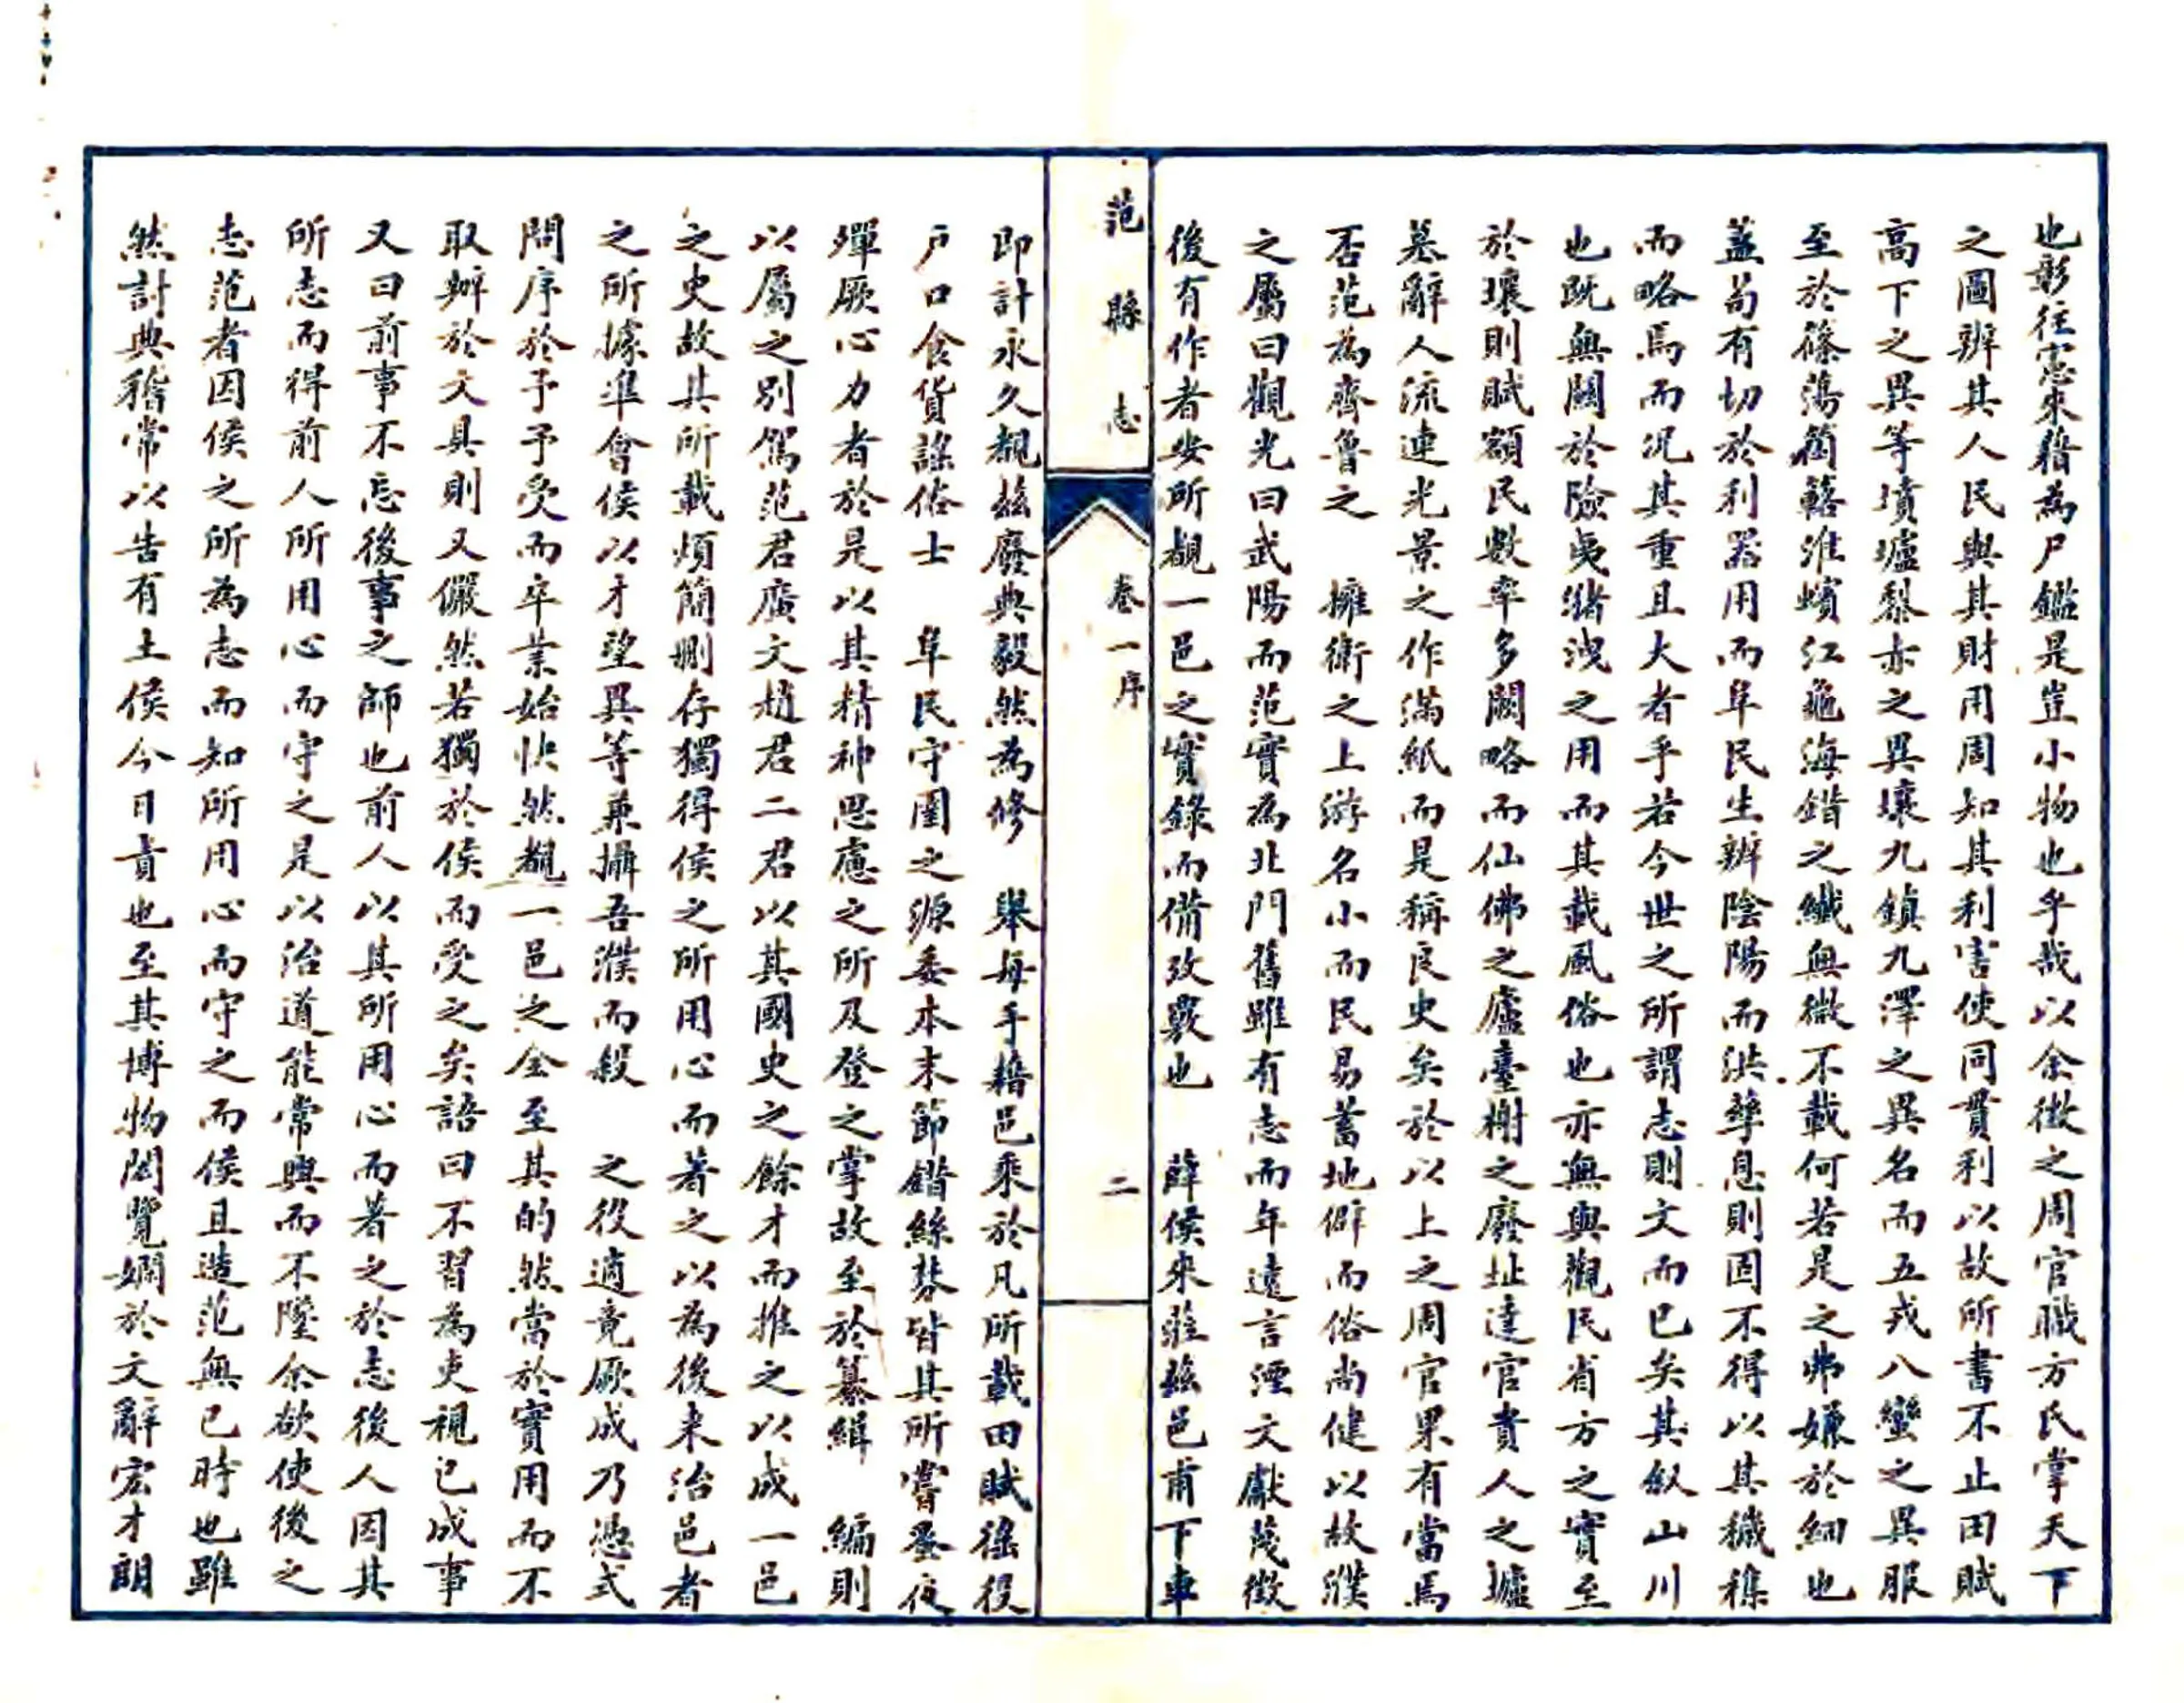 也彰往宻來藉為尸鑑是豈小物也乎哉以余徴之周官職方氏掌天下
之圖辨其人民與其財用周知其利害使同貫利以故所書不止田賦
高下之異等墳壚黎赤之異壤九鎮九澤之異名而五戎八蠻之異服
至於篠蕩箘簵淮蠙江龜海錯之纖無微不載何若是之弗嫌於細也
蓋苟有切於利器用而阜民生辨陰陽而洪孳息則固不得以其穢穅
而略焉而况其重且大者乎若今世之所謂志則文而已矣其叙山川
也既無關於險夷潴洩之用而其載風俗也亦無與觀民省方之實至
於壤則賦額民數率多闕略而仙佛之廬臺榭之廢址達官貴人之墟
墓辭人流連光景之作滿紙而是稱良史矣於以上之周官果有當焉
否范為齊魯之 擁衛之上游名小而民易蓄地僻而俗尚健以故濮
之屬曰觀光曰武陽而范實為北門舊雖有志而年遠言湮文獻茂徴
後有作者安所覩一邑之實錄而備攷覈也 薛侯來莅兹邑甫下車
范縣志 卷一序 二
即計永久覩兹廢典毅然為修 舉每手藉邑乘於凡所載田賦徭役
戶口食貨謠俗士 阜民守圉之源委本末節鍇絲棼皆其所嘗蚤夜
殫厥心力者於是以其精神思慮之所及登之掌故至於纂緝 編則
以屬之別駕范君廣文趙君二君以其國史之餘才而推之以成一邑
之史故其所載煩簡刪存獨得侯之所用心而著之以為後来治邑者
之所據準會侯以才望異等兼攝吾濮而殺 之役適竟厥成乃憑式
問序於予予受而卒業始快然覩一邑之全至其的然當於實用而不
取辦於文具則又儼然若獨於侯而受之矣語曰不習為吏視已成事
又曰前事不忘後事之師也前人以其所用心而著之於志後人因其
所志而得前人所用心而守之是以治道能常興而不墜余欲使後之
志范者因侯之所為志而知所用心而守之而侯且造范無已時也雖
然討典稽常以告有土侯今日責也至其博物閎覽嫻於文辭宏才朗